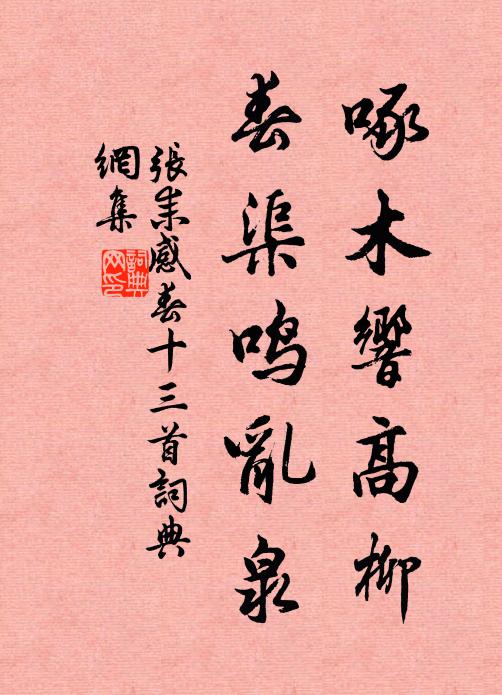 啄木響高柳
春渠鳴亂泉
張耒感春十三首詞典
網集
詞典
网印